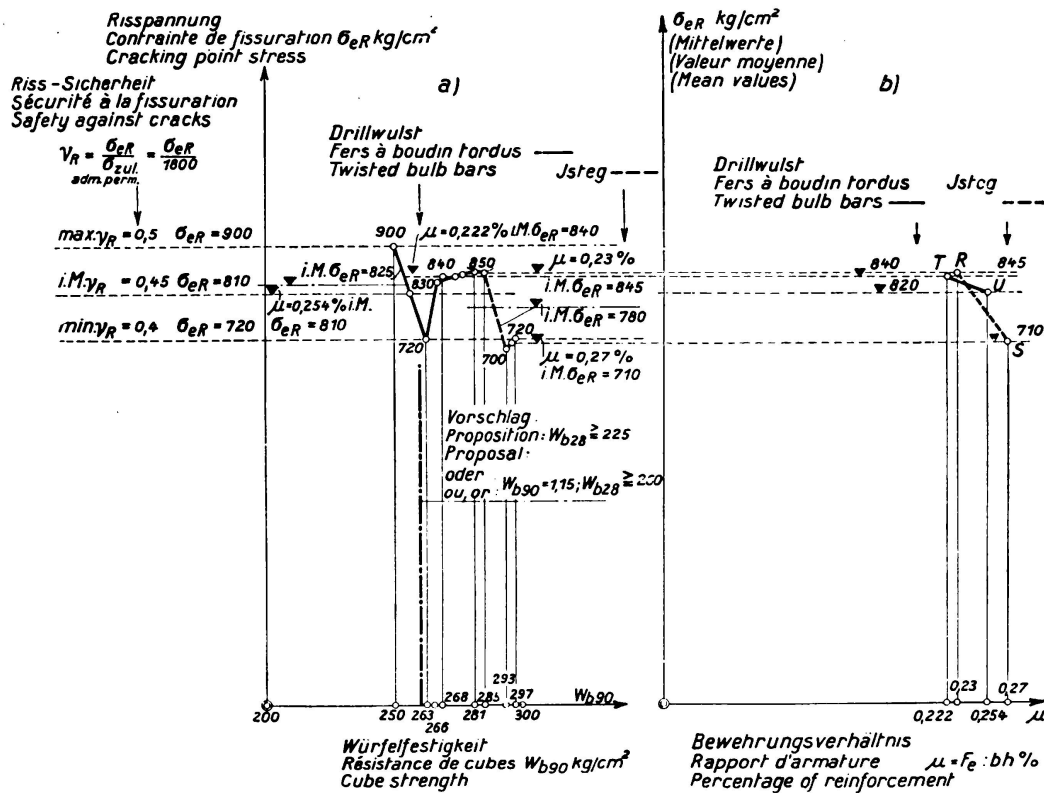 Risspannung
Contrainte de fissuration σeR kg/cm²
Cracking point stress
a)
Riss-Sicherheit
Sécurité à la fissuration
Safety against cracks
γR = σeR / σzul. = σeR / 1800
adm. perm.
Drillwulst
Fers à boudin tordus
Twisted bulb bars
Jsteg
max. γR = 0,5 σeR = 900
900
μ = 0,222 % i.M. σeR = 840
i.M. σeR = 825
840
850
μ = 0,23 %
i.M. γR = 0,45 σeR = 810
830
i.M. σeR = 845
μ = 0,254 % i.M.
σeR = 810
i.M. σeR = 780
min. γR = 0,4 σeR = 720
720
700
720
μ = 0,27 %
i.M. σeR = 710
Vorschlag
Proposition: Wb28 ≧ 225
Proposal:
oder
ou, or: Wb90 = 1,15; Wb28 ≧
200
250
263
266
268
281
285
293
297
300
Wb90
Würfelfestigkeit
Résistance de cubes Wb90 kg/cm²
Cube strength
σeR kg/cm²
(Mittelwerte)
(Valeur moyenne)
(Mean values)
b)
Drillwulst
Fers à boudin tordus
Twisted bulb bars
Jsteg
840
T
R
845
820
U
710
S
0,222
0,23
0,254
0,27
μ
Bewehrungsverhältnis
Rapport d'armature μ = Fe : bh %
Percentage of reinforcement